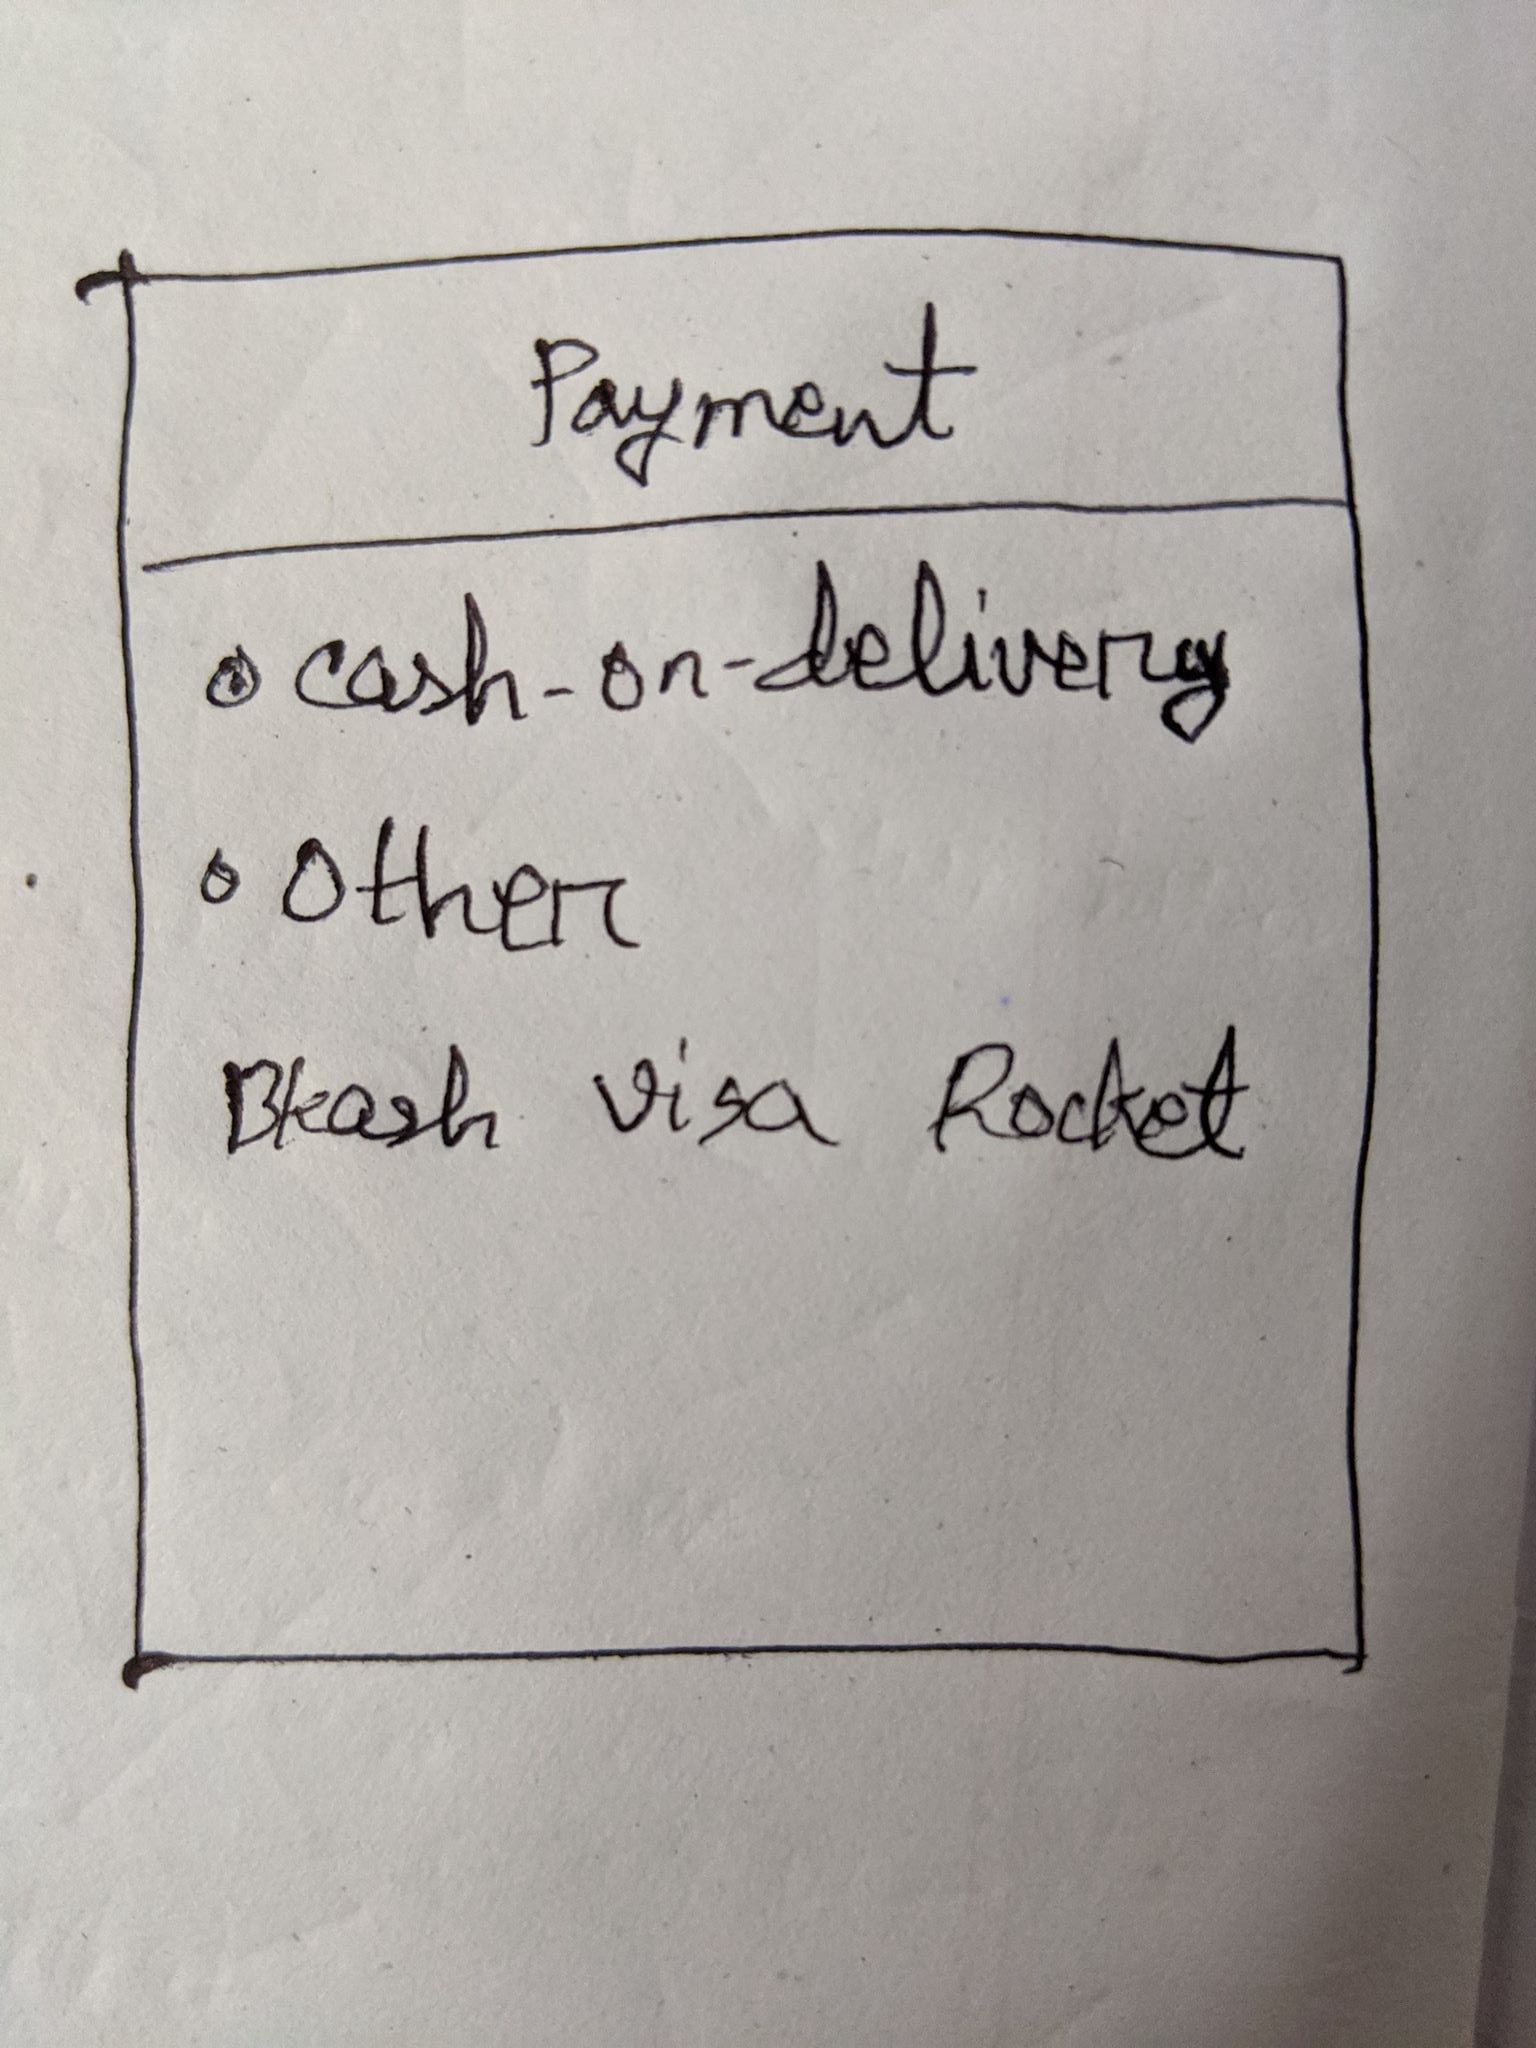 Payment
cash-on-delivery
Other
Bkash visa Rocket